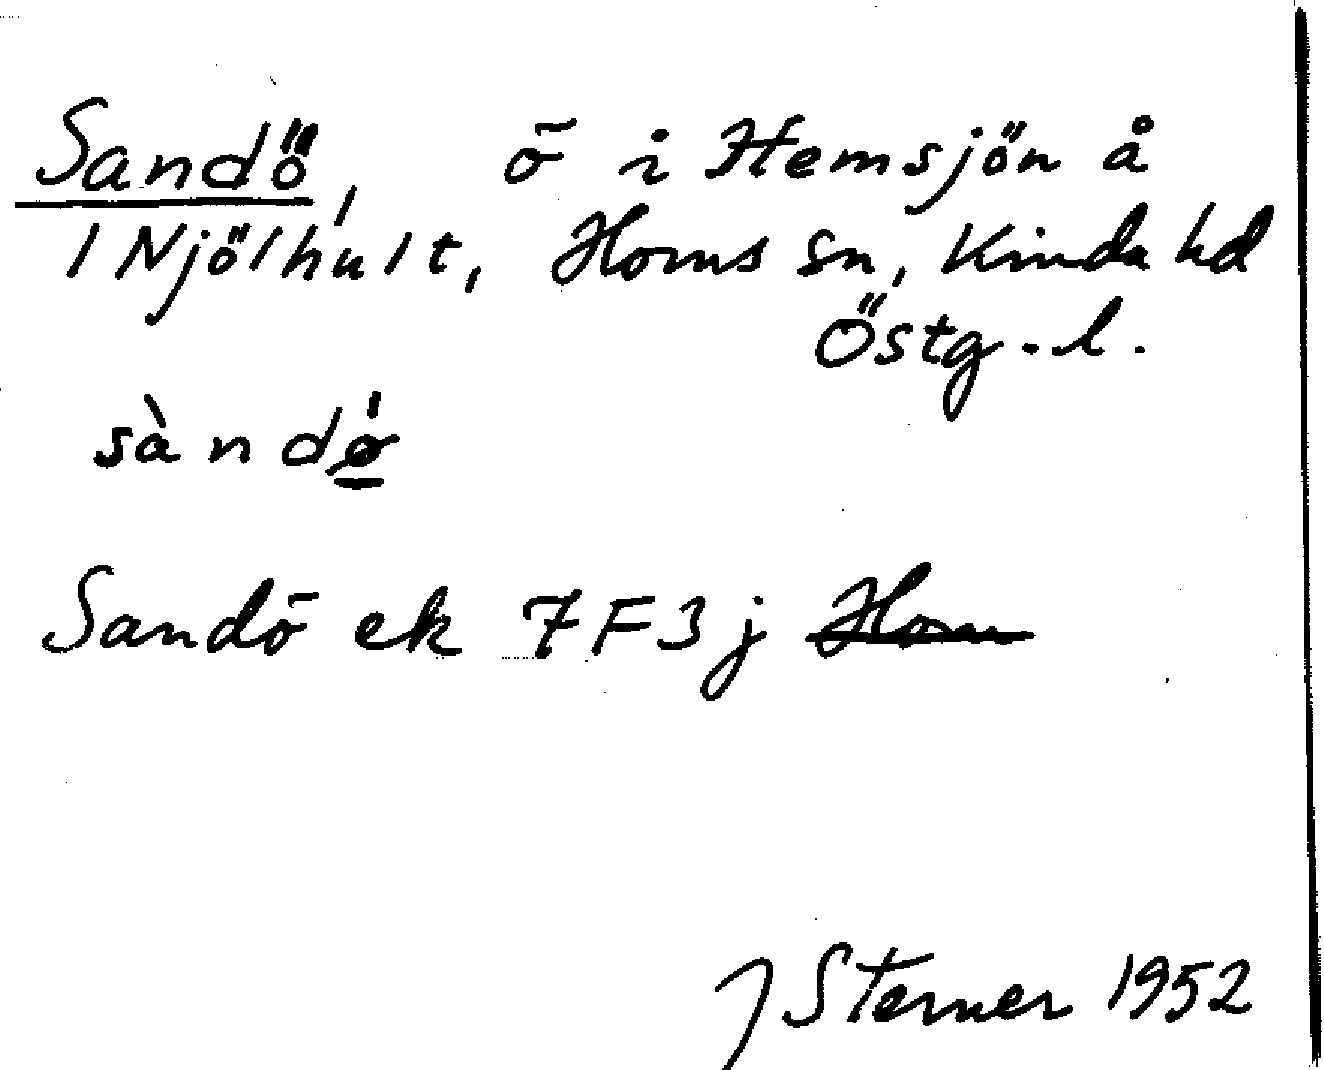 Sandö, ö i Hemsjön å
1 Njölhult, Horns sn, Kinda hd
Östg. l.
sàndǿ
Sandö ek 7F3j Horn
J Sterner 1952